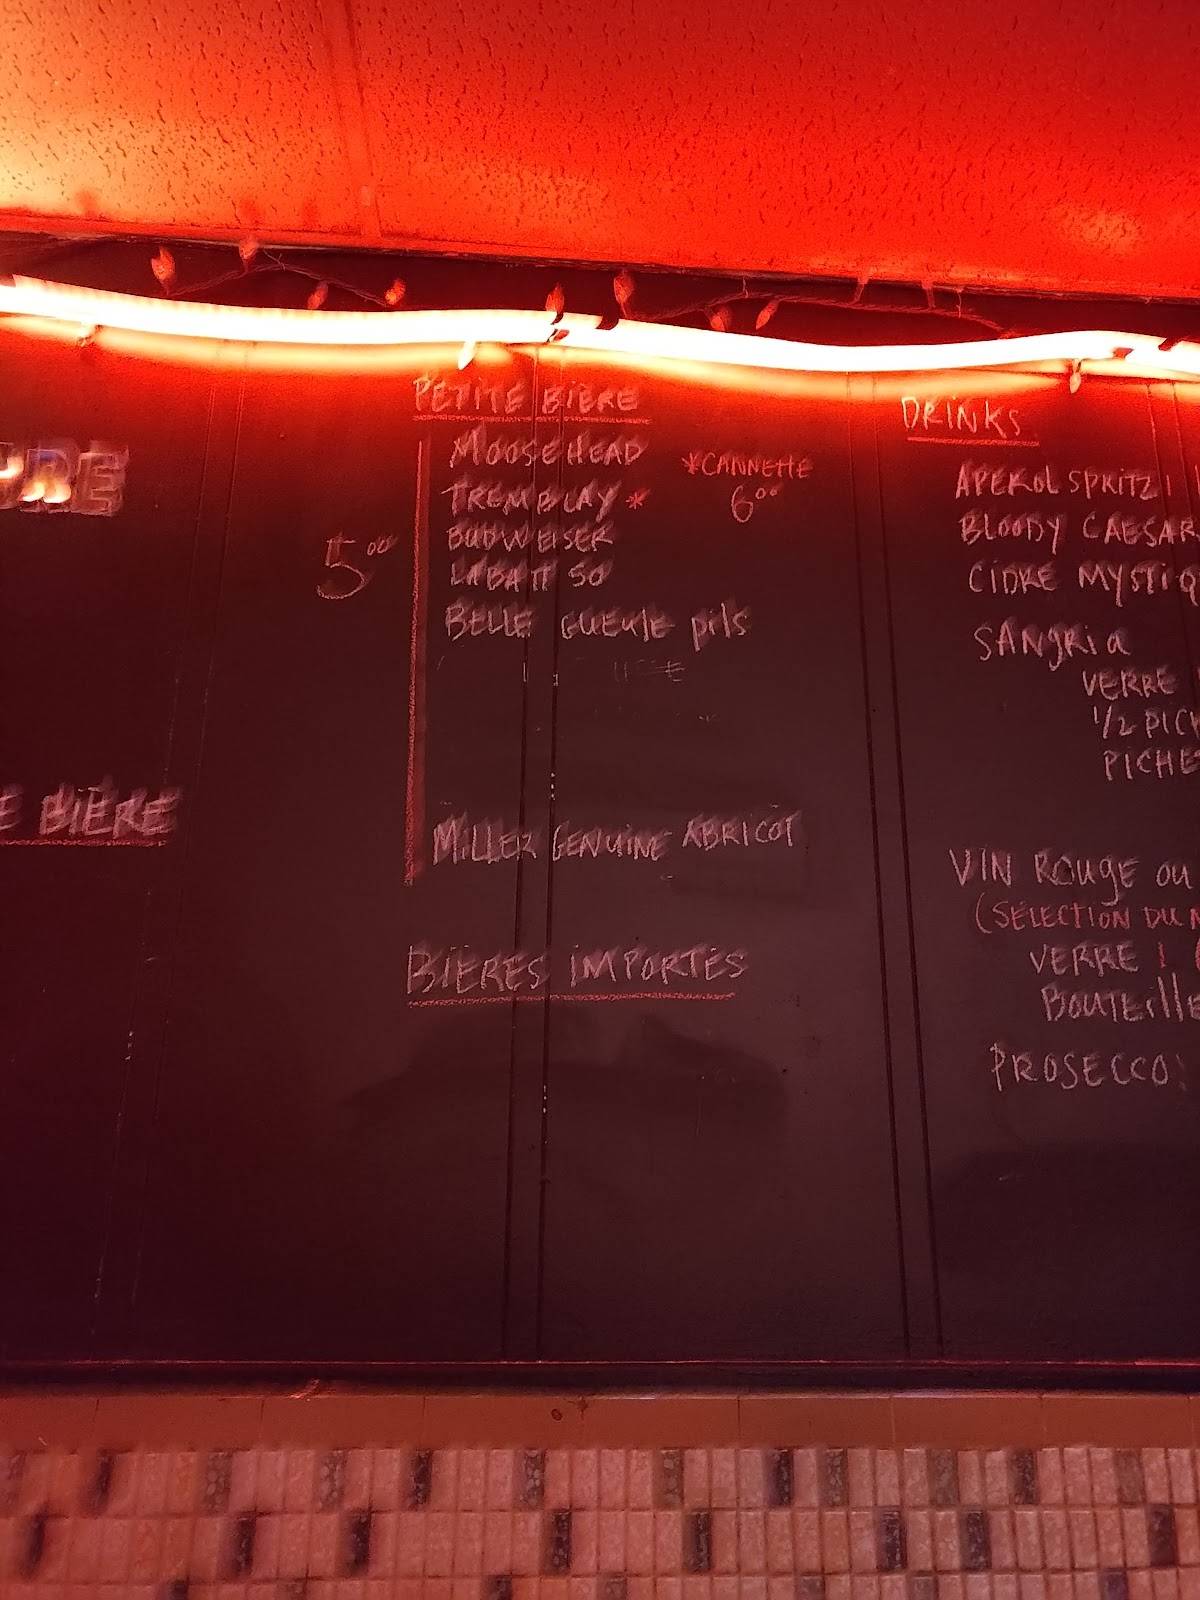 PETITE BIÈRE
MOOSEHEAD
*CANNETTE
TREMBLAY *
6⁰⁰
BUDWEISER
5⁰⁰
LABATT 50
BELLE GUEULE pils
MILLER GENUINE ABRICOT
BIÈRES IMPORTÉS
URE
E BIÈRE
DRINKS
APEROL SPRITZ
BLOODY CAESAR
CIDRE MYSTIQ
SANGRIA
VERRE
1/2 PICH
PICHE
VIN ROUGE OU
(SÉLECTION DU M
VERRE
BOUTEILLE
PROSECCO